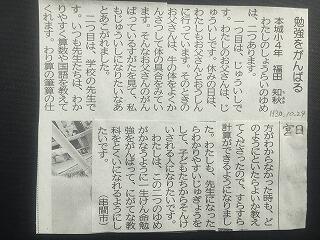 勉強をがんばる
本城小4年 福田 知秋
H30.10.24
宮日
わたしのしょうらいのゆめ
は、二つあります。
一つ目は、じゅういしで
す。わたしのお父さんは、じ
ゅういです。休みの日は、
わたしもお父さんとおうしん
に行っています。そのとき
お父さんは、牛の体をよくか
んさつして体の具合をみてい
ます。そんなお父さんのがん
ばっているすがたを見て、私
もじゅういしになりたいなあ
とあこがれます。
二つ目は、学校の先生で
す。いつも先生たちは、わか
りやすく算数や国語を教えて
くれます。わり算の筆算の仕
方がわからなかった時も、ど
のようにといたらよいか教え
てくださったので、すらすら
計算ができるようになりまし
た。わたしも、先生になった
らわかりやすいじゅぎょうを
して、子どもたちからそんけ
いされる人になりたいです。
わたしは、この二つのゆめ
がかなうように一生けん命勉
強をがんばって、にがてな教
科をとくいになれるようにし
たいです。
(串間市)